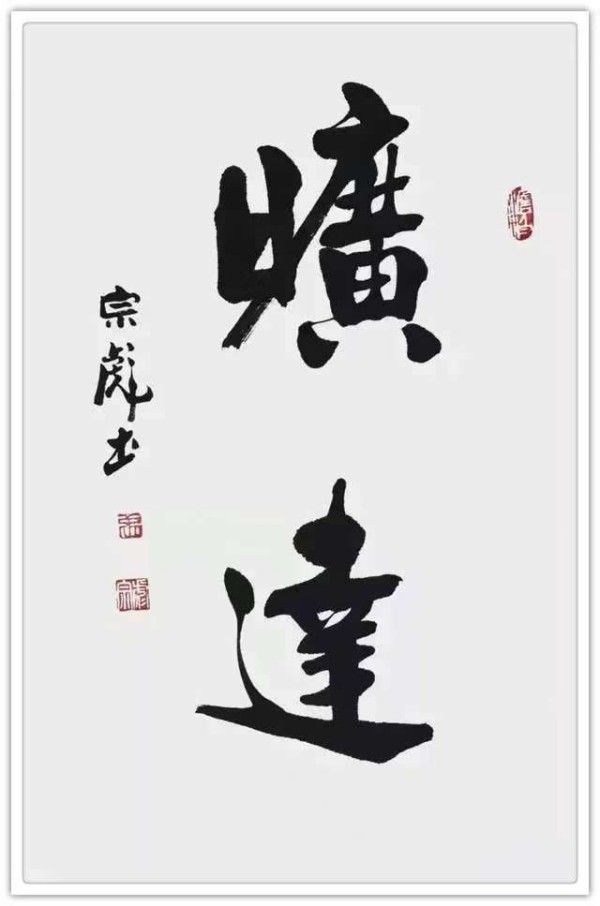 曠達
宗彪书